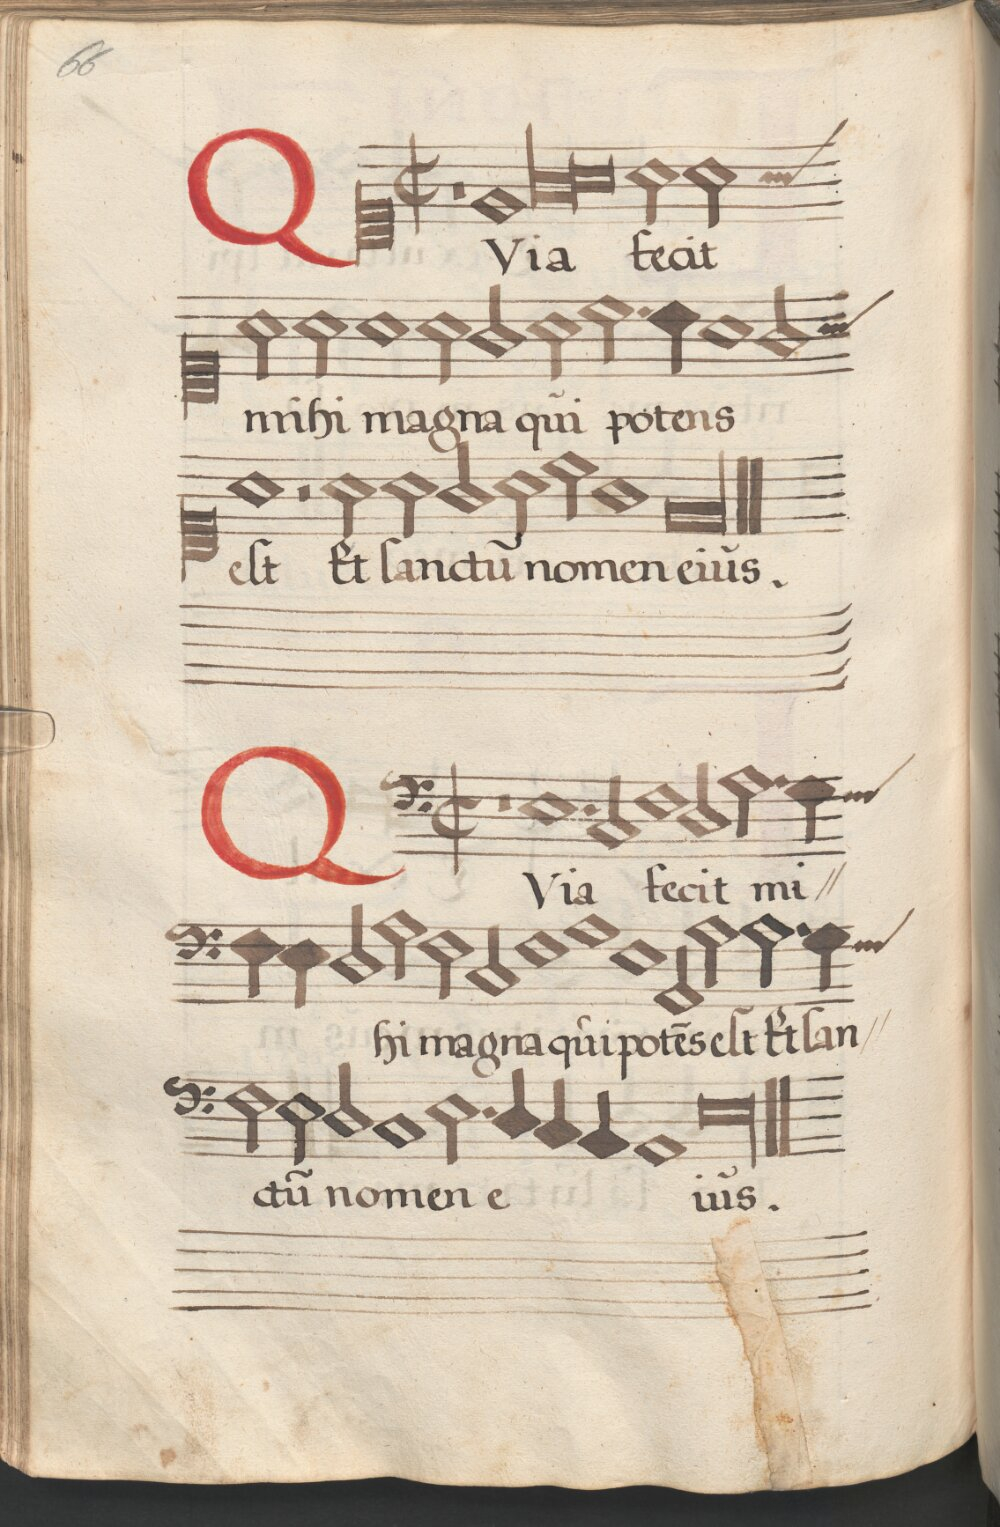 66
QVia fecit
mihi magna qũi potens
est Et sanctũ nomen eiũs.
QVia fecit mi//
hi magna qũi potẽs est Et san//
ctũ nomen e iũs.